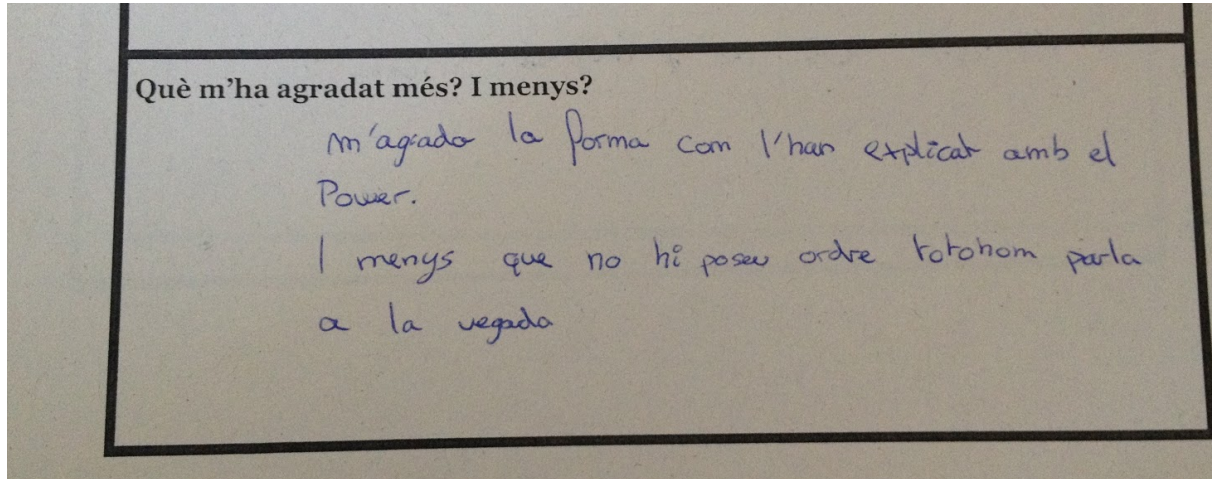 Què m'ha agradat més? I menys?
m'agrado la forma com l'han explicat amb el
Power.
I menys que no hi poseu ordre totohom parla
a la vegada